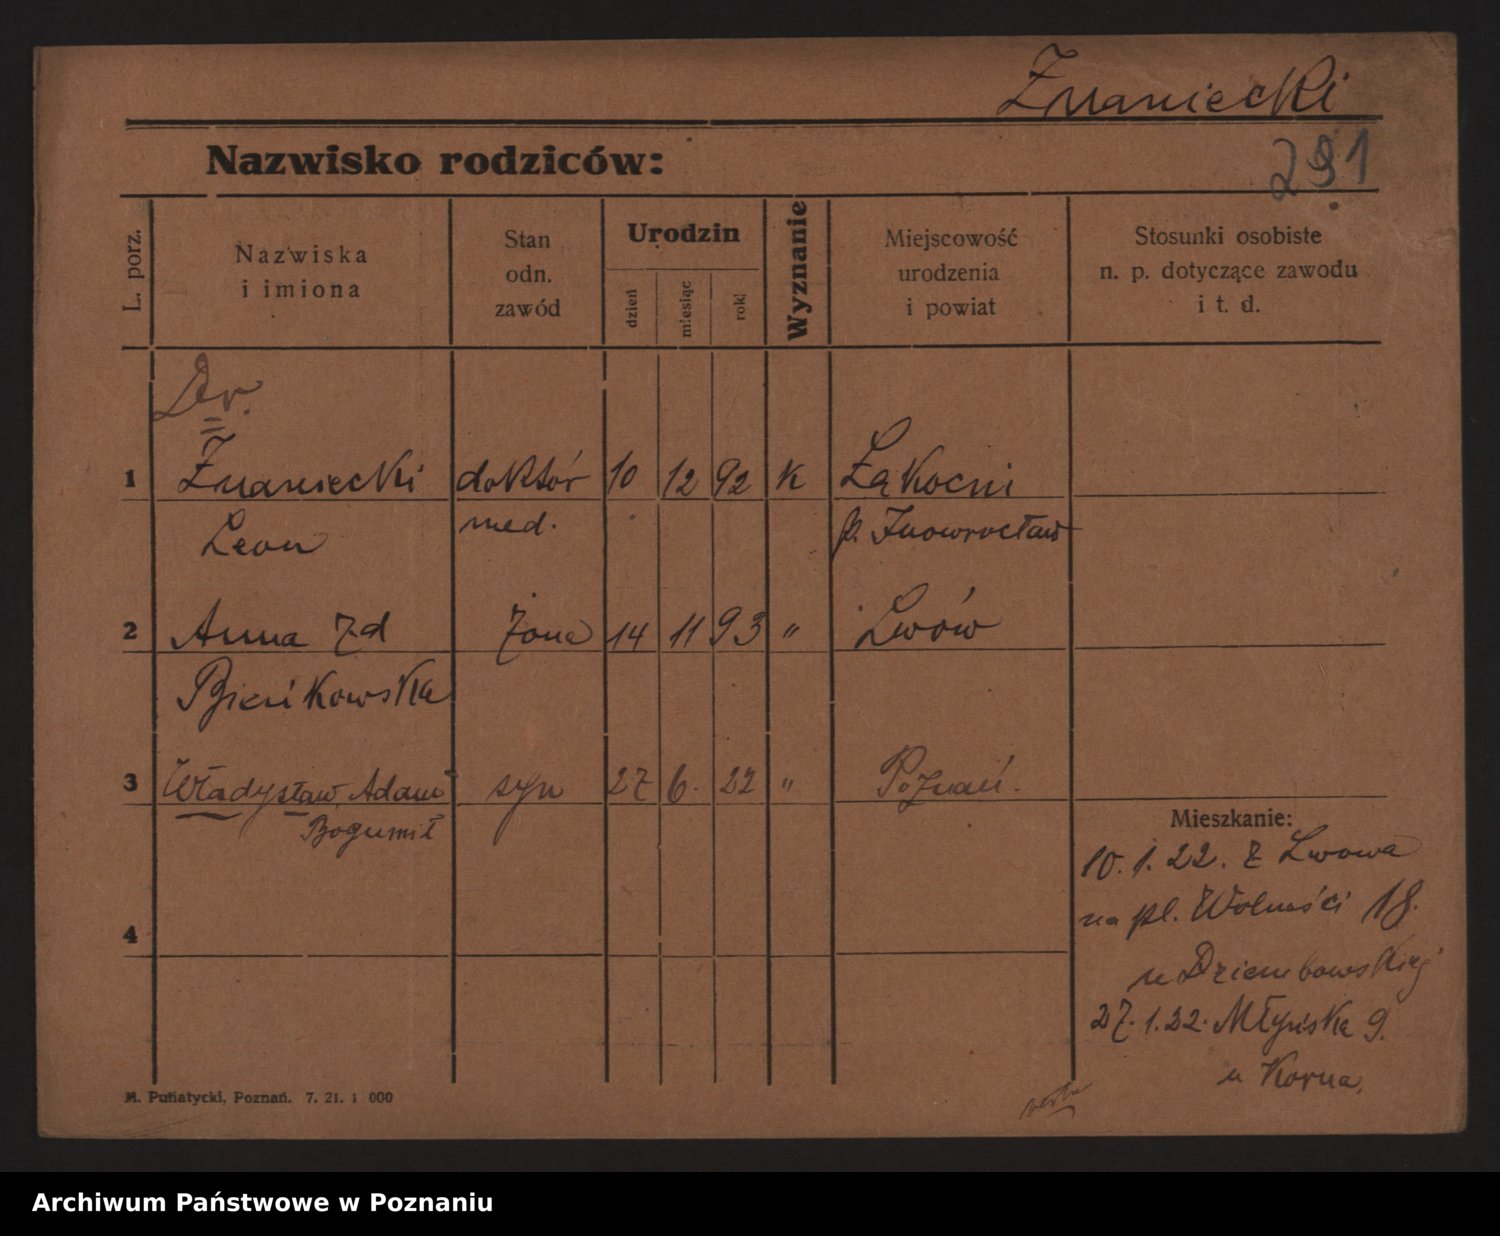 Znaniecki
Nazwisko rodziców:
291
L. porz.
Nazwiska
i imiona
Stan
odn.
zawód
Urodzin
dzień
miesiąc
rok
Wyznanie
Miejscowość
urodzenia
i powiat
Stosunki osobiste
n. p. dotyczące zawodu
i t. d.
Dr.
1 Znaniecki doktór 10 12 92 K Łąkocni
Leon med. p. Inowrocław
2 Anna zd żona 14 11 93 " Lwów
Bieńkowska
3 Władysław, Adam syn 27 6. 22 " Poznań.
Bogumił
4
Mieszkanie:
10. 1. 22. z Lwowa
na pl. Wolności 18.
u Dziembowskiej
27. 1. 22. Młyńska 9.
u Korna.
M. Putiatycki, Poznań. 7. 21. 1 000
Archiwum Państwowe w Poznaniu